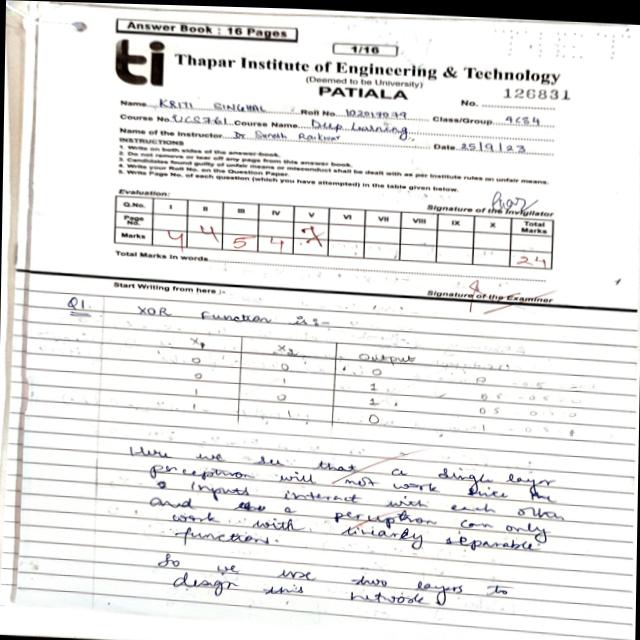 Answer Book : 16 Pages
1/16
ti Thapar Institute of Engineering & Technology
(Deemed to be University)
PATIALA
No. 126831
Name KRITI SINGHAL Roll No. Class/Group
Course No. UCS761 Course Name Deep Learning
Name of the Instructor Dr Date 25/9/23
INSTRUCTIONS
1. Write on both sides of the answer book.
2. Do not remove or tear off any page from this answer book.
3. Candidates found guilty of unfair means or misconduct shall be dealt with as per Institute rules on unfair means.
4. Write your Roll No. on the Question Paper.
5. Write Page No. of each question (which you have attempted) in the table given below.
Signature of the Invigilator
Evaluation:
Q.No. I II III IV V VI VII VIII IX X Total Marks
Page No.
Marks 4 4 5 4 7 24
Total Marks in words
Signature of the Examiner
Start Writing from here :-
Q1. XOR Function is:-
X1 X2 Output
0 0 0
0 1 1
1 0 1
1 1 0
Here we see that a single layer
perceptron will not work since the
2 inputs interact with each other
and a perceptron can only
work with linearly separable
functions.
So we use two layers to
design this network